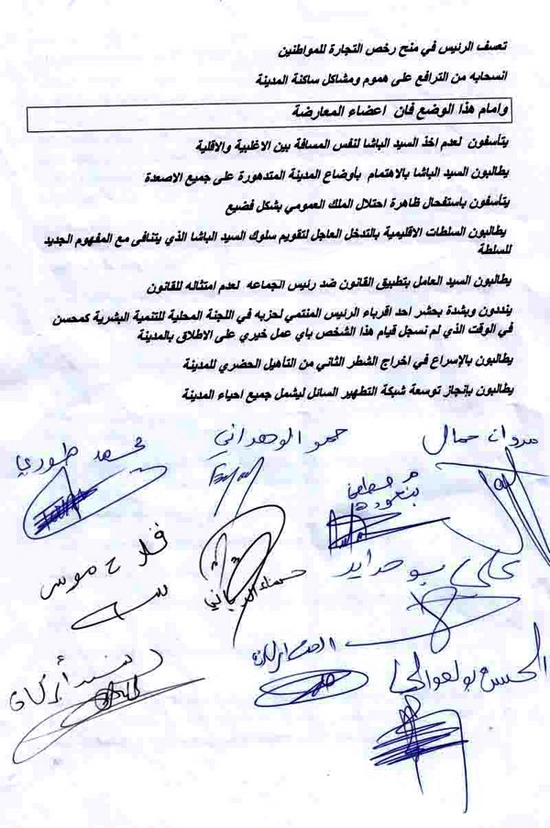 تعسف الرئيس في منح رخص التجارة للمواطنين
انسحابه من الترافع على هموم ومشاكل ساكنة المدينة
وامام هذا الوضع فان اعضاء المعارضة
يتأسفون لعدم اخذ السيد الباشا لنفس المسافة بين الاغلبية والاقلية
يطالبون السيد الباشا بالاهتمام بأوضاع المدينة المتدهورة على جميع الاصعدة
يتأسفون باستفحال ظاهرة احتلال الملك العمومي بشكل فضيع
يطالبون السلطات الاقليمية بالتدخل العاجل لتقويم سلوك السيد الباشا الذي يتنافى مع المفهوم الجديد
للسلطة
يطالبون السيد العامل بتطبيق القانون ضد رئيس الجماعه لعدم امتثاله للقانون
ينددون وبشدة بحشر احد اقرباء الرئيس المنتمي لحزبه في اللجنة المحلية للتنمية البشرية كمحسن
في الوقت الذي لم نسجل قيام هذا الشخص باي عمل خيري على الاطلاق بالمدينة
يطالبون بالإسراع في اخراج الشطر الثاني من التأهيل الحضري للمدينة
يطالبون بإنجاز توسعة شبكة التطهير السائل ليشمل جميع احياء المدينة
مروان حمال
حمو الوهداني
محمد طوري
مصطفى
علي بوحدايد
فلاح موس
الحسن بولعوالي